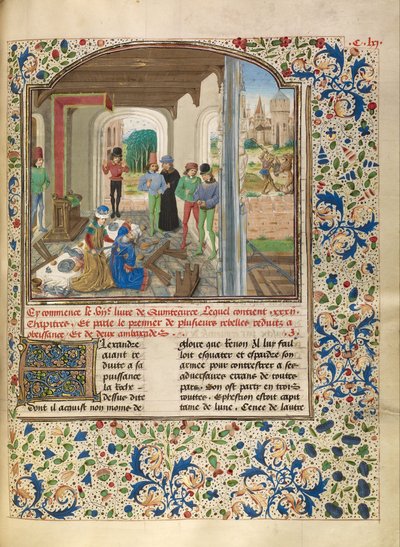 C. lxj.
Cy commence le viije livre de Quintecurce Lequel contient xxxij
Chapitres. Et parle le premier de plusieurs rebelles reduitz a
obeissance. Et de deux ambaxades.
Alexandre
aiant re
duite a sa
puissance
la Roche
dessus dite
dont il acquist non moins de
gloire que renon Il lui fail
loit esquater et espardre son
armee pour contrester a ses
adversaires errans de toutes
pars. Son ost party en trois
routtes. Ephestion estoit capi
taine de lune. Cenee de lautre